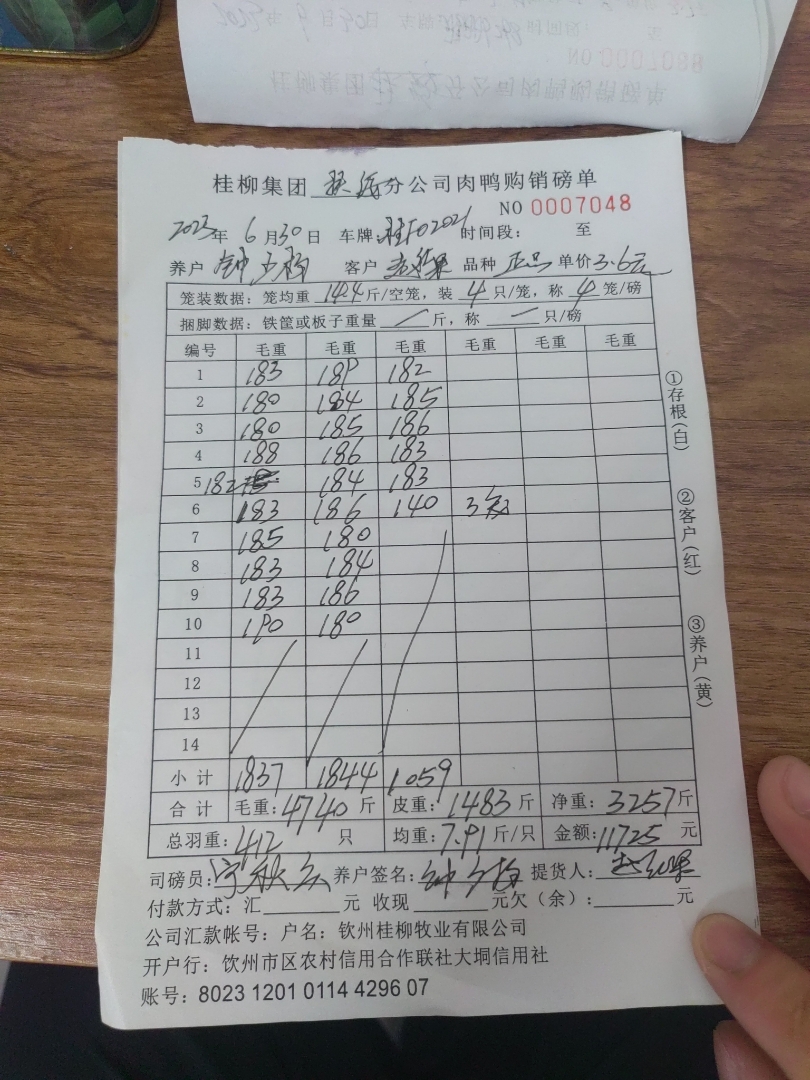 桂柳集团 分公司肉鸭购销磅单
NO 0007048
2023年 6月30日 车牌: 时间段: 至
养户 钟 客户 品种 正品 单价3.6元
笼装数据: 笼均重 14.4斤/空笼, 装 4 只/笼, 称 4 笼/磅
捆脚数据: 铁筐或板子重量 / 斤, 称 一 只/磅
编号 毛重 毛重 毛重 毛重 毛重 毛重
1 183 189 182
2 180 184 185
3 180 185 186
4 188 186 183
5 182 184 183
6 183 186 140 3笼
7 185 180
8 183 184
9 183 186
10 190 180
11
12
13
14
小计 1837 1844 1059
合计 毛重: 4740 斤 皮重: 1483 斤 净重: 3257斤
总羽重: 412 只 均重: 7.91斤/只 金额: 11725 元
司磅员: 养户签名: 提货人:
付款方式: 汇 元 收现 元欠(余): 元
公司汇款帐号: 户名: 钦州桂柳牧业有限公司
开户行: 饮州市区农村信用合作联社大垌信用社
账号: 8023 1201 0114 4296 07
①存根(白)
②客户(红)
③养户(黄)